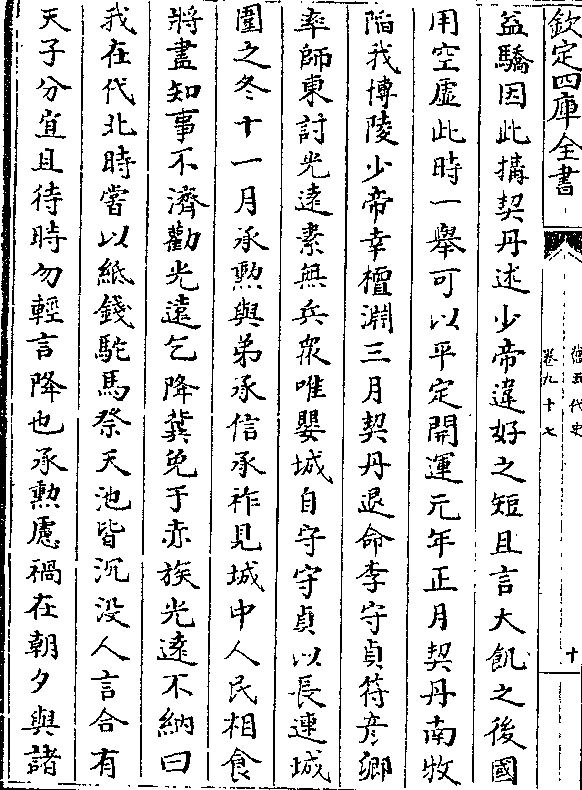 欽定四庫全書
舊五代史
卷九十七
十
益驕因此搆契丹述少帝違好之短且言大飢之後國
用空虛此時一舉可以平定開運元年正月契丹南牧
陷我博陵少帝幸檀淵三月契丹退命李守貞符彥卿
率師東討光遠素無兵衆唯嬰城自守守貞以長連城
圍之冬十一月承勲與弟承信承祚見城中人民相食
將盡知事不濟勸光遠乞降冀免于赤族光遠不納曰
我在代北時嘗以紙錢駝馬祭天池皆沉没人言合有
天子分宜且待時勿輕言降也承勲慮禍在朝夕與諸